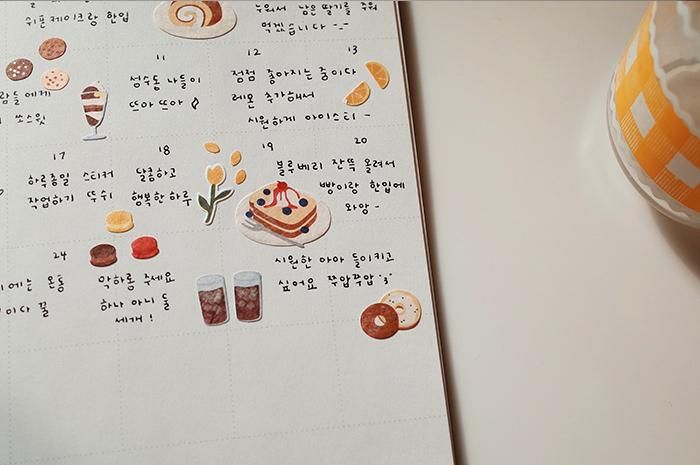 쉬폰케이크랑 한입
누워서 남은 딸기를 주워
먹겠습니다 -_-
11
12
13
성수동 나들이
뜨아 뜨아
점점 좋아지는 중이다
레몬 추가해서
시원하게 아이스티 -
람들에게
쏘스윗
17
18
19
20
하루종일 스티커
작업하기 뚜쉬
달콤하고
행복한 하루
블루베리 잔뜩 올려서
빵이랑 한입에
와앙 -
24
에는 온통
이다 꿀
마하롱 주세요
하나 아니 둘
세개 !
시원한 아아 들이키고
싶어요 쭈압쭈압